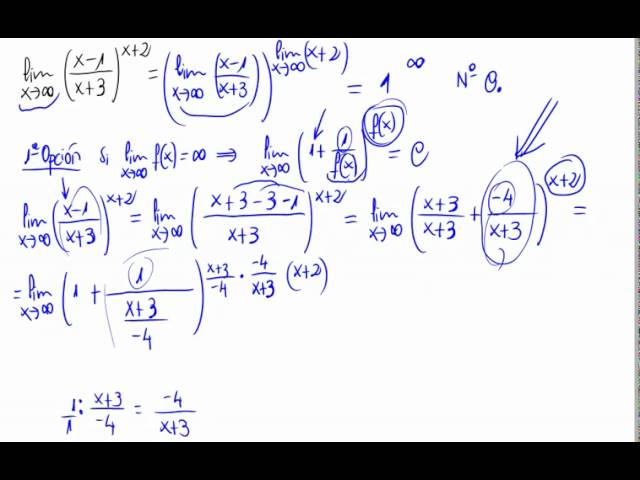 lim x→∞ ((x-1)/(x+3))^(x+2) = (lim x→∞ ((x-1)/(x+3)))^(lim x→∞ (x+2)) = 1^∞ Nº e.
1ª Opción Si lim x→∞ f(x)=∞ ⇒ lim x→∞ (1 + 1/f(x))^f(x) = e
lim x→∞ ((x-1)/(x+3))^(x+2) = lim x→∞ ((x+3-3-1)/(x+3))^(x+2) = lim x→∞ ((x+3)/(x+3) + (-4)/(x+3))^(x+2) =
= lim x→∞ (1 + 1/((x+3)/(-4)))^((x+3)/(-4) · (-4)/(x+3) (x+2))
1/1 : (x+3)/(-4) = (-4)/(x+3)